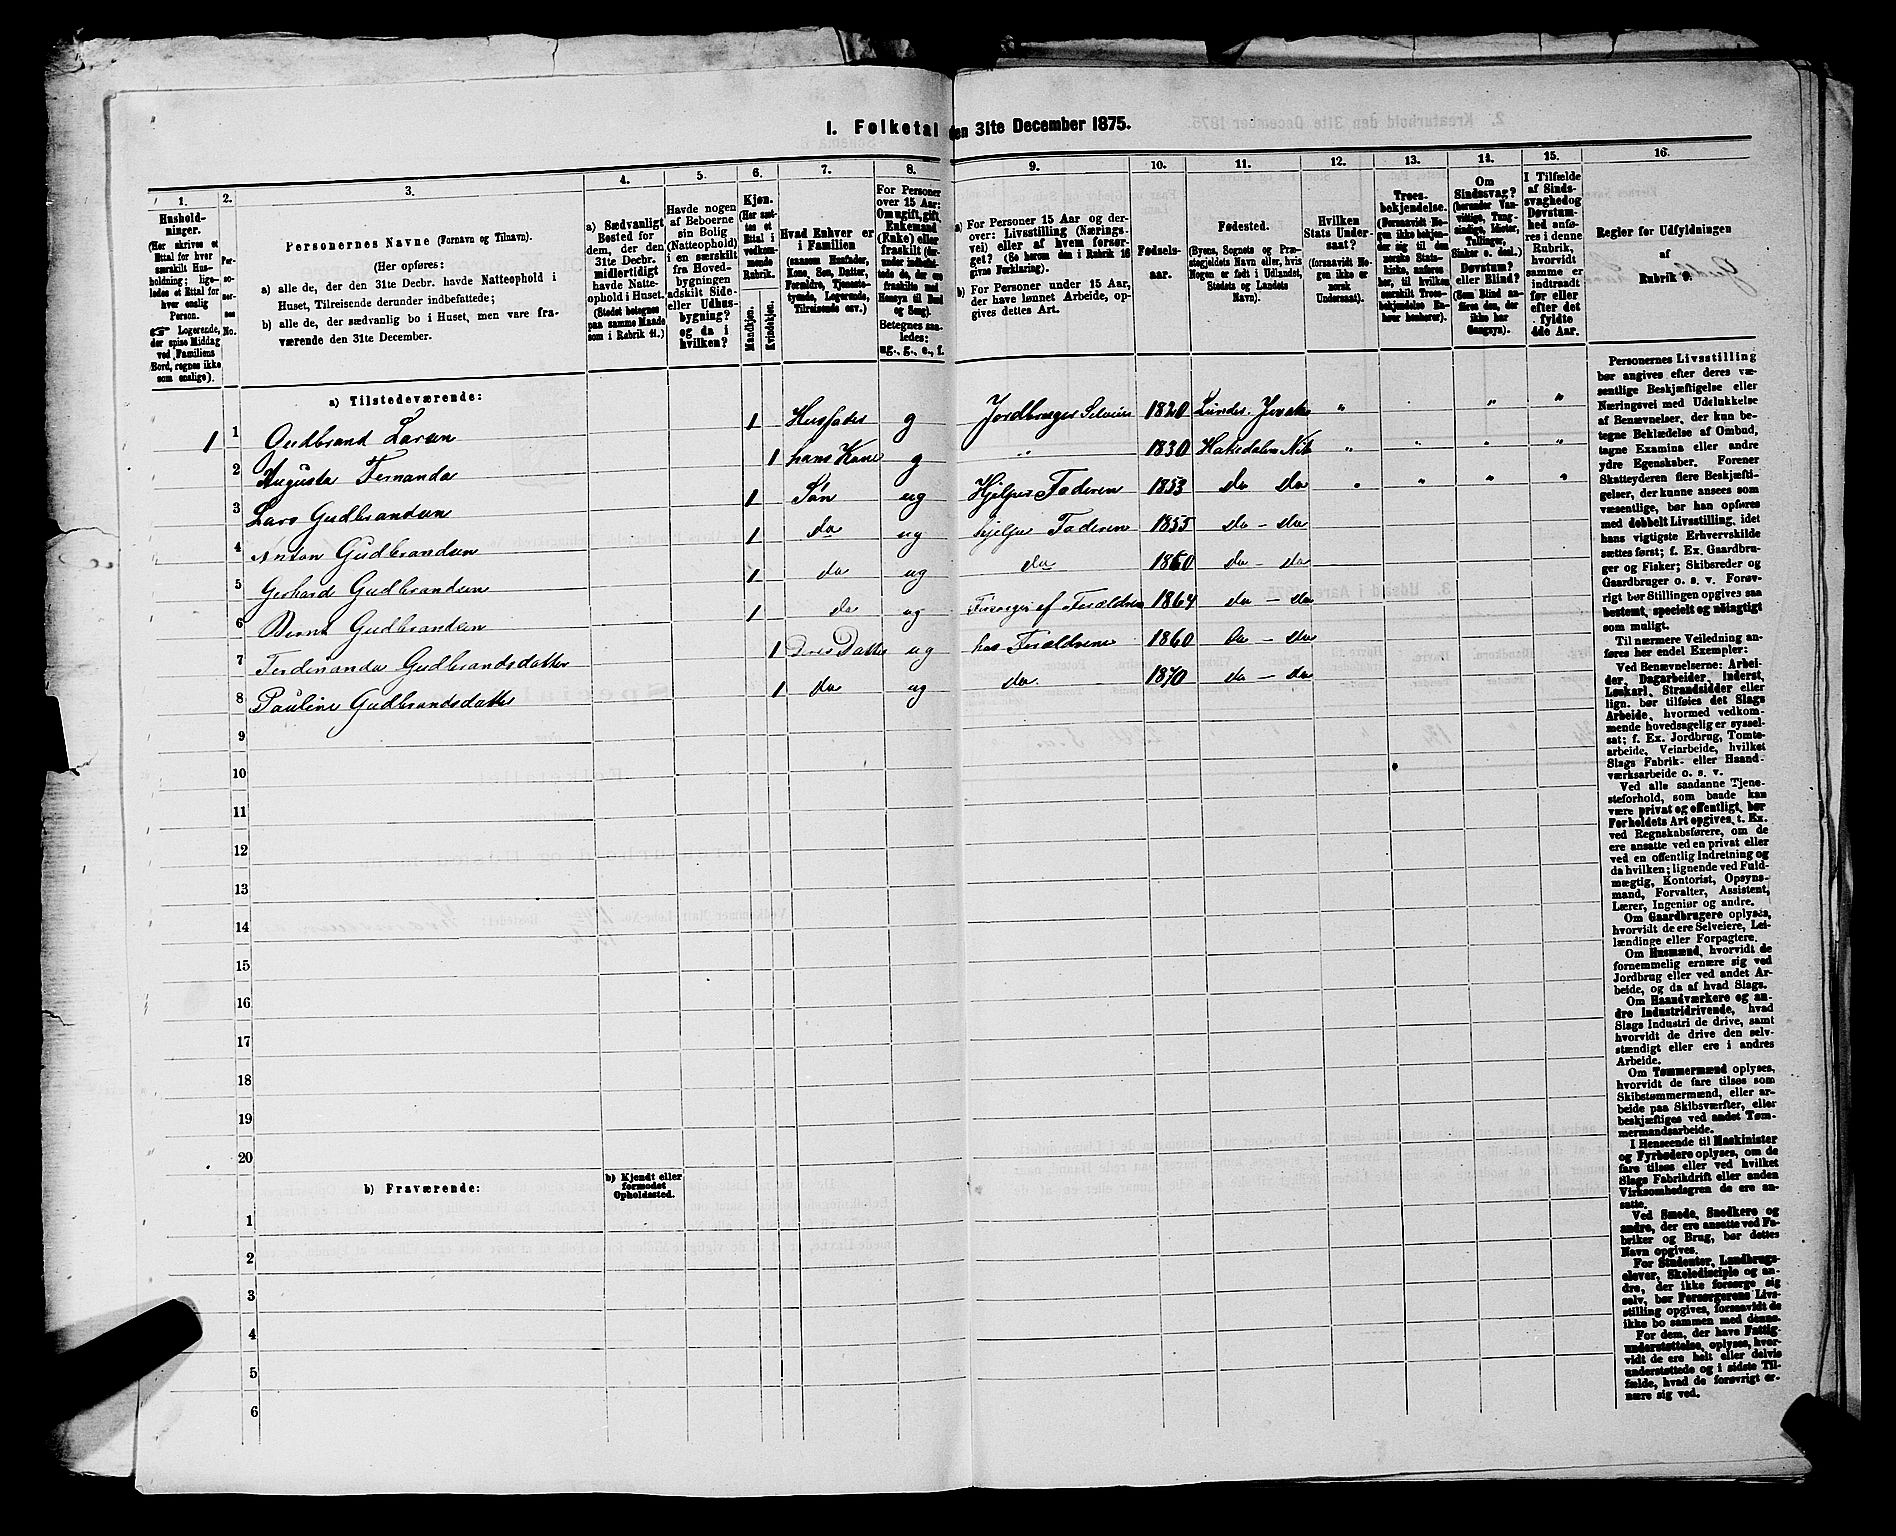 I. Folketal den 31te December 1875.
1. 2. 3. 4. 5. 6. 7. 8. 9. 10. 11. 12. 13. 14. 15. 16.
Hushold-
ninger.
(Her skrives et
Ettal for hver
særskilt Hus-
holdning; lige-
ledes et Ettal for
hver enslig
Person.
☞ Logerende,
der spise Middag
ved Familiens
Bord, regnes ikke
som enslige).
Per-
soner-
nes
No.
Personernes Navne (Fornavn og Tilnavn).
(Her opføres:
a) alle de, der den 31te Decbr. havde Natteophold i
Huset, Tilreisende derunder indbefattede;
b) alle de, der sædvanlig bo i Huset, men vare fra-
værende den 31te December.
a) Sædvanligt
Bosted for
dem, der den
31te Decbr.
midlertidigt
havde Natte-
ophold i Huset.
(Stedet betegnes
paa samme Maade
som i Rubrik 11.)
Havde nogen
af Beboerne
sin Bolig
(Natteophold)
i en særskilt
fra Hoved-
bygningen
adskilt Side-
eller Udhus-
bygning?
og da i
hvilken?
Kjøn.
(Her sæt-
tes et
Ettal i
vedkom-
mende
Rubrik.
Mandkjøn.
Kvindekjøn.
Hvad Enhver er
i Familien
(saasom Husfader,
Kone, Søn, Datter,
Forældre, Tjeneste-
tyende, Logerende,
Tilreisende osv.)
For Personer
over 15 Aar:
Om ugift, gift,
Enkemand
(Enke) eller
fraskilt (der-
under indbefat-
tede de, der ere
fraskilte med
Hensyn til Bord
og Seng).
Betegnes saa-
ledes:
ug., g., e., f.
a) For Personer 15 Aar og der-
over: Livsstilling (Nærings-
vei) eller af hvem forsør-
get? (Se herom den i Rubrik 16
givne Forklaring).
b) For Personer under 15 Aar,
der have lønnet Arbeide, op-
gives dettes Art.
Fødsels-
aar.
Fødested.
(Byens, Sognets og Præ-
stegjeldets Navn eller, hvis
Nogen er født i Udlandet,
Stedets og Landets
Navn).
Hvilken
Stats Under-
saat?
(forsaavidt No-
gen ikke er
norsk
Undersaat).
Troes-
bekjendelse.
(Forsaavidt No-
gen ikke bekjen-
der sig til den
norske Stats-
kirke, anføres
her, til hvilken
særskilt Troes-
bekjendelse En-
hver henhører).
Om
Sindssvag?
(herunder Van-
vittige, Tung-
sindige, Idioter,
Tullinger,
Sinker o. desl.)
Døvstum?
eller Blind?
(Som Blind an-
føres den, der
ikke har
Gangsyn).
I Tilfælde
af Sinds-
svaghed og
Døvstum-
hed anfø-
res i denne
Rubrik,
hvorvidt
samme er
indtraadt
før eller
efter det
fyldte
4de Aar.
Regler for Udfyldningen
af
Rubrik 9.
a) Tilstedeværende:
1 1 Gudbrand Larsen 1 Husfader g Jordbruger Selveier 1820 Lunder. Jevnaker " " "
2 Augusta Fernanda 1 hans Kone g " 1830 Hakedalen Nit " " " "
3 Lars Gudbrandsen 1 Søn ug Hjelper Faderen 1853 do do " " " "
4 Anton Gudbrandsen 1 do ug hjelper Faderen 1855 do - do
5 Gerhard Gudbrandsen 1 do ug do 1860 do - do
6 Bernt Gudbrandsen 1 do ug Forsørges af Forældrene 1864 do - do
7 Ferdinanda Gudbrandsdatter 1 Deres Datter ug hos Forældrene 1860 do - do
8 Pauline Gudbrandsdatter 1 do ug do 1870 do - do
9
10
11
12
13
14
15
16
17
18
19
20
b) Fraværende:
b) Kjendt eller
formodet
Opholdssted.
1
2
3
4
5
6
Personernes Livsstilling
bør angives efter deres væ-
sentlige Beskjæftigelse eller
Næringsvei med Udelukkelse
af Benævnelser, der kun be-
tegne Beklædelse af Ombud,
tagne Examina eller andre
ydre Egenskaber. Forener
Skatteyderen flere Beskjæfti-
gelser, der kunne ansees som
væsentlige, bør han opføres
med dobbelt Livsstilling, idet
hans vigtigste Erhvervskilde
sættes først; f. Ex. Gaardbru-
ger og Fisker; Skibsreder og
Gaardbruger o. s. v. Forøv-
rigt bør Stillingen opgives saa
bestemt, specielt og nøiagtigt
som muligt.
Til nærmere Veiledning an-
føres her endel Exempler:
Ved Benævnelserne: Arbei-
der, Dagarbeider, Inderst,
Løskarl, Strandsidder eller
lign. bør tilføies det Slags
Arbeide, hvormed vedkom-
mende hovedsagelig er syssel-
sat; f. Ex. Jordbrug, Tomte-
arbeide, Veiarbeide, hvilket
Slags Fabrik- eller Haand-
værksarbeide o. s. v.
Ved alle saadanne Tjene-
steforhold, som baade kan
være privat og offentligt, bør
Forholdets Art opgives, t. Ex.
ved Regnskabsførere, om de
ere ansatte ved en privat eller
ved en offentlig Indretning og
da hvilken; lignende ved Fuld-
mægtig, Kontorist, Opsyns-
mand, Forvalter, Assistent,
Lærer, Ingeniør og andre.
Om Gaardbrugere oplyses,
hvorvidt de ere Selveiere, Lei-
lændinge eller Forpagtere.
Om Husmænd, hvorvidt de
fornemmelig ernære sig ved
Jordbrug eller ved andet Ar-
beide, og da af hvad Slags.
Om Haandværkere og an-
dre Industridrivende, hvad
Slags Industri de drive, samt
hvorvidt de drive den selv-
stændigt eller ere i andres
Arbeide.
Om Tømmermænd oplyses,
hvorvidt de fare tilsøs som
Skibstømmermænd, eller ar-
beide paa Skibsværfter, eller
beskjæftiges ved andet Tøm-
mermandsarbeide.
I Henseende til Maskinister
og Fyrbødere oplyses, om de
fare tilsøs eller ved hvilket
Slags Fabrikdrift eller anden
Virksomhedsgren de ere an-
satte.
Ved Smede, Snedkere og
andre, der ere ansatte ved Fa-
briker og Brug, bør dettes
Navn opgives.
For Studenter, Landbrugs-
elever, Skoledisciple og an-
dre, der ikke forsørge sig
selv, bør Forsørgerens Livs-
stilling opgives, forsaavidt de
ikke bo sammen med denne.
For dem, der have Fattig-
understøttelse, oplyses, hvor-
vidt de ere helt eller delvis
understøttede og i sidste Til-
fælde, hvad de forøvrigt er-
nære sig ved.